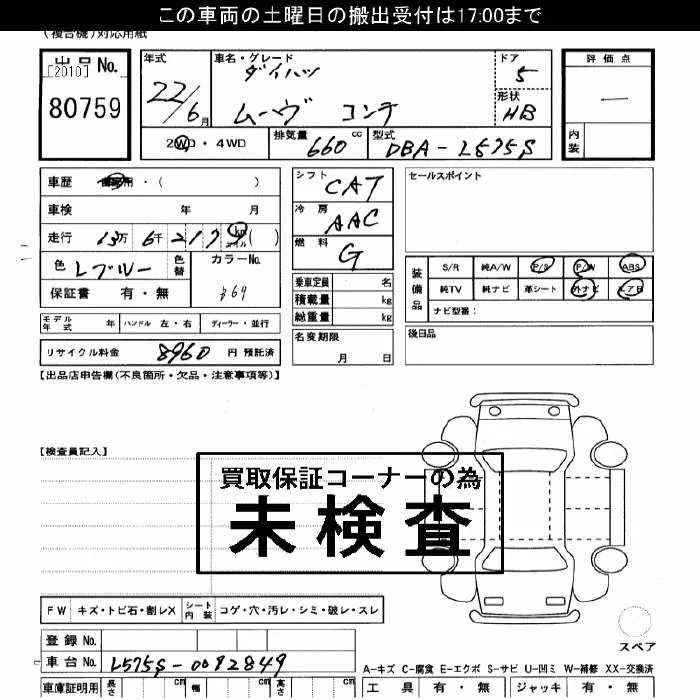 この車両の土曜日の搬出受付は17:00まで
(複合機)対応用紙
出品 No.
[2010]
80759
年式
22/6月
車名・グレード
ダイハツ
ムーヴ コンテ
ドア
5
形状
HB
評価点
—
内装
2WD・4WD
排気量
660 cc
型式
DBA-L575S
車歴 ・( )
車検 年 月
走行 13万 6千 217 km マイル ( )
色 Lブルー
色替
カラーNo.
保証書 有・無
シフト CAT
冷房 AAC
燃料 G
乗車定員 名
積載量 kg
総重量 kg
セールスポイント
装備品
S/R 純A/W P/S P/W ABS
純TV 純ナビ 革シート 外ナビ エアB
ナビ型番:
モデル年式 年 ハンドル 左・右 ディーラー・並行
名変期限
月 日
後日品
リサイクル料金 8960 円 預託済
【出品店申告欄(不良箇所・欠品・注意事項等)】
【検査員記入】
買取保証コーナーの為
未検査
FW キズ・トビ石・割レX
シート内装 コゲ・穴・汚レ・シミ・破レ・スレ
スペア
登録 No.
車台 No. L575S-0082849
A-キズ C-腐食 E-エクボ S-サビ U-凹ミ W-補修 XX-交換済
車庫証明用 長さ cm 幅 cm 高さ cm
工具 有・無 ジャッキ 有・無